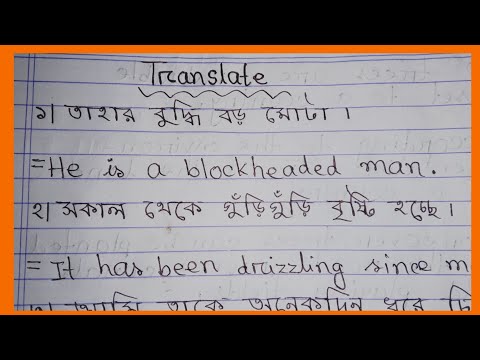 Translate
১। তাহার বুদ্ধি বড় মোটা ।
=He is a blockheaded man.
২। সকাল থেকে গুঁড়িগুঁড়ি বৃষ্টি হচ্ছে ।
= It has been drizzling since m
৩। আমি তাকে অনেকদিন ধরে চি